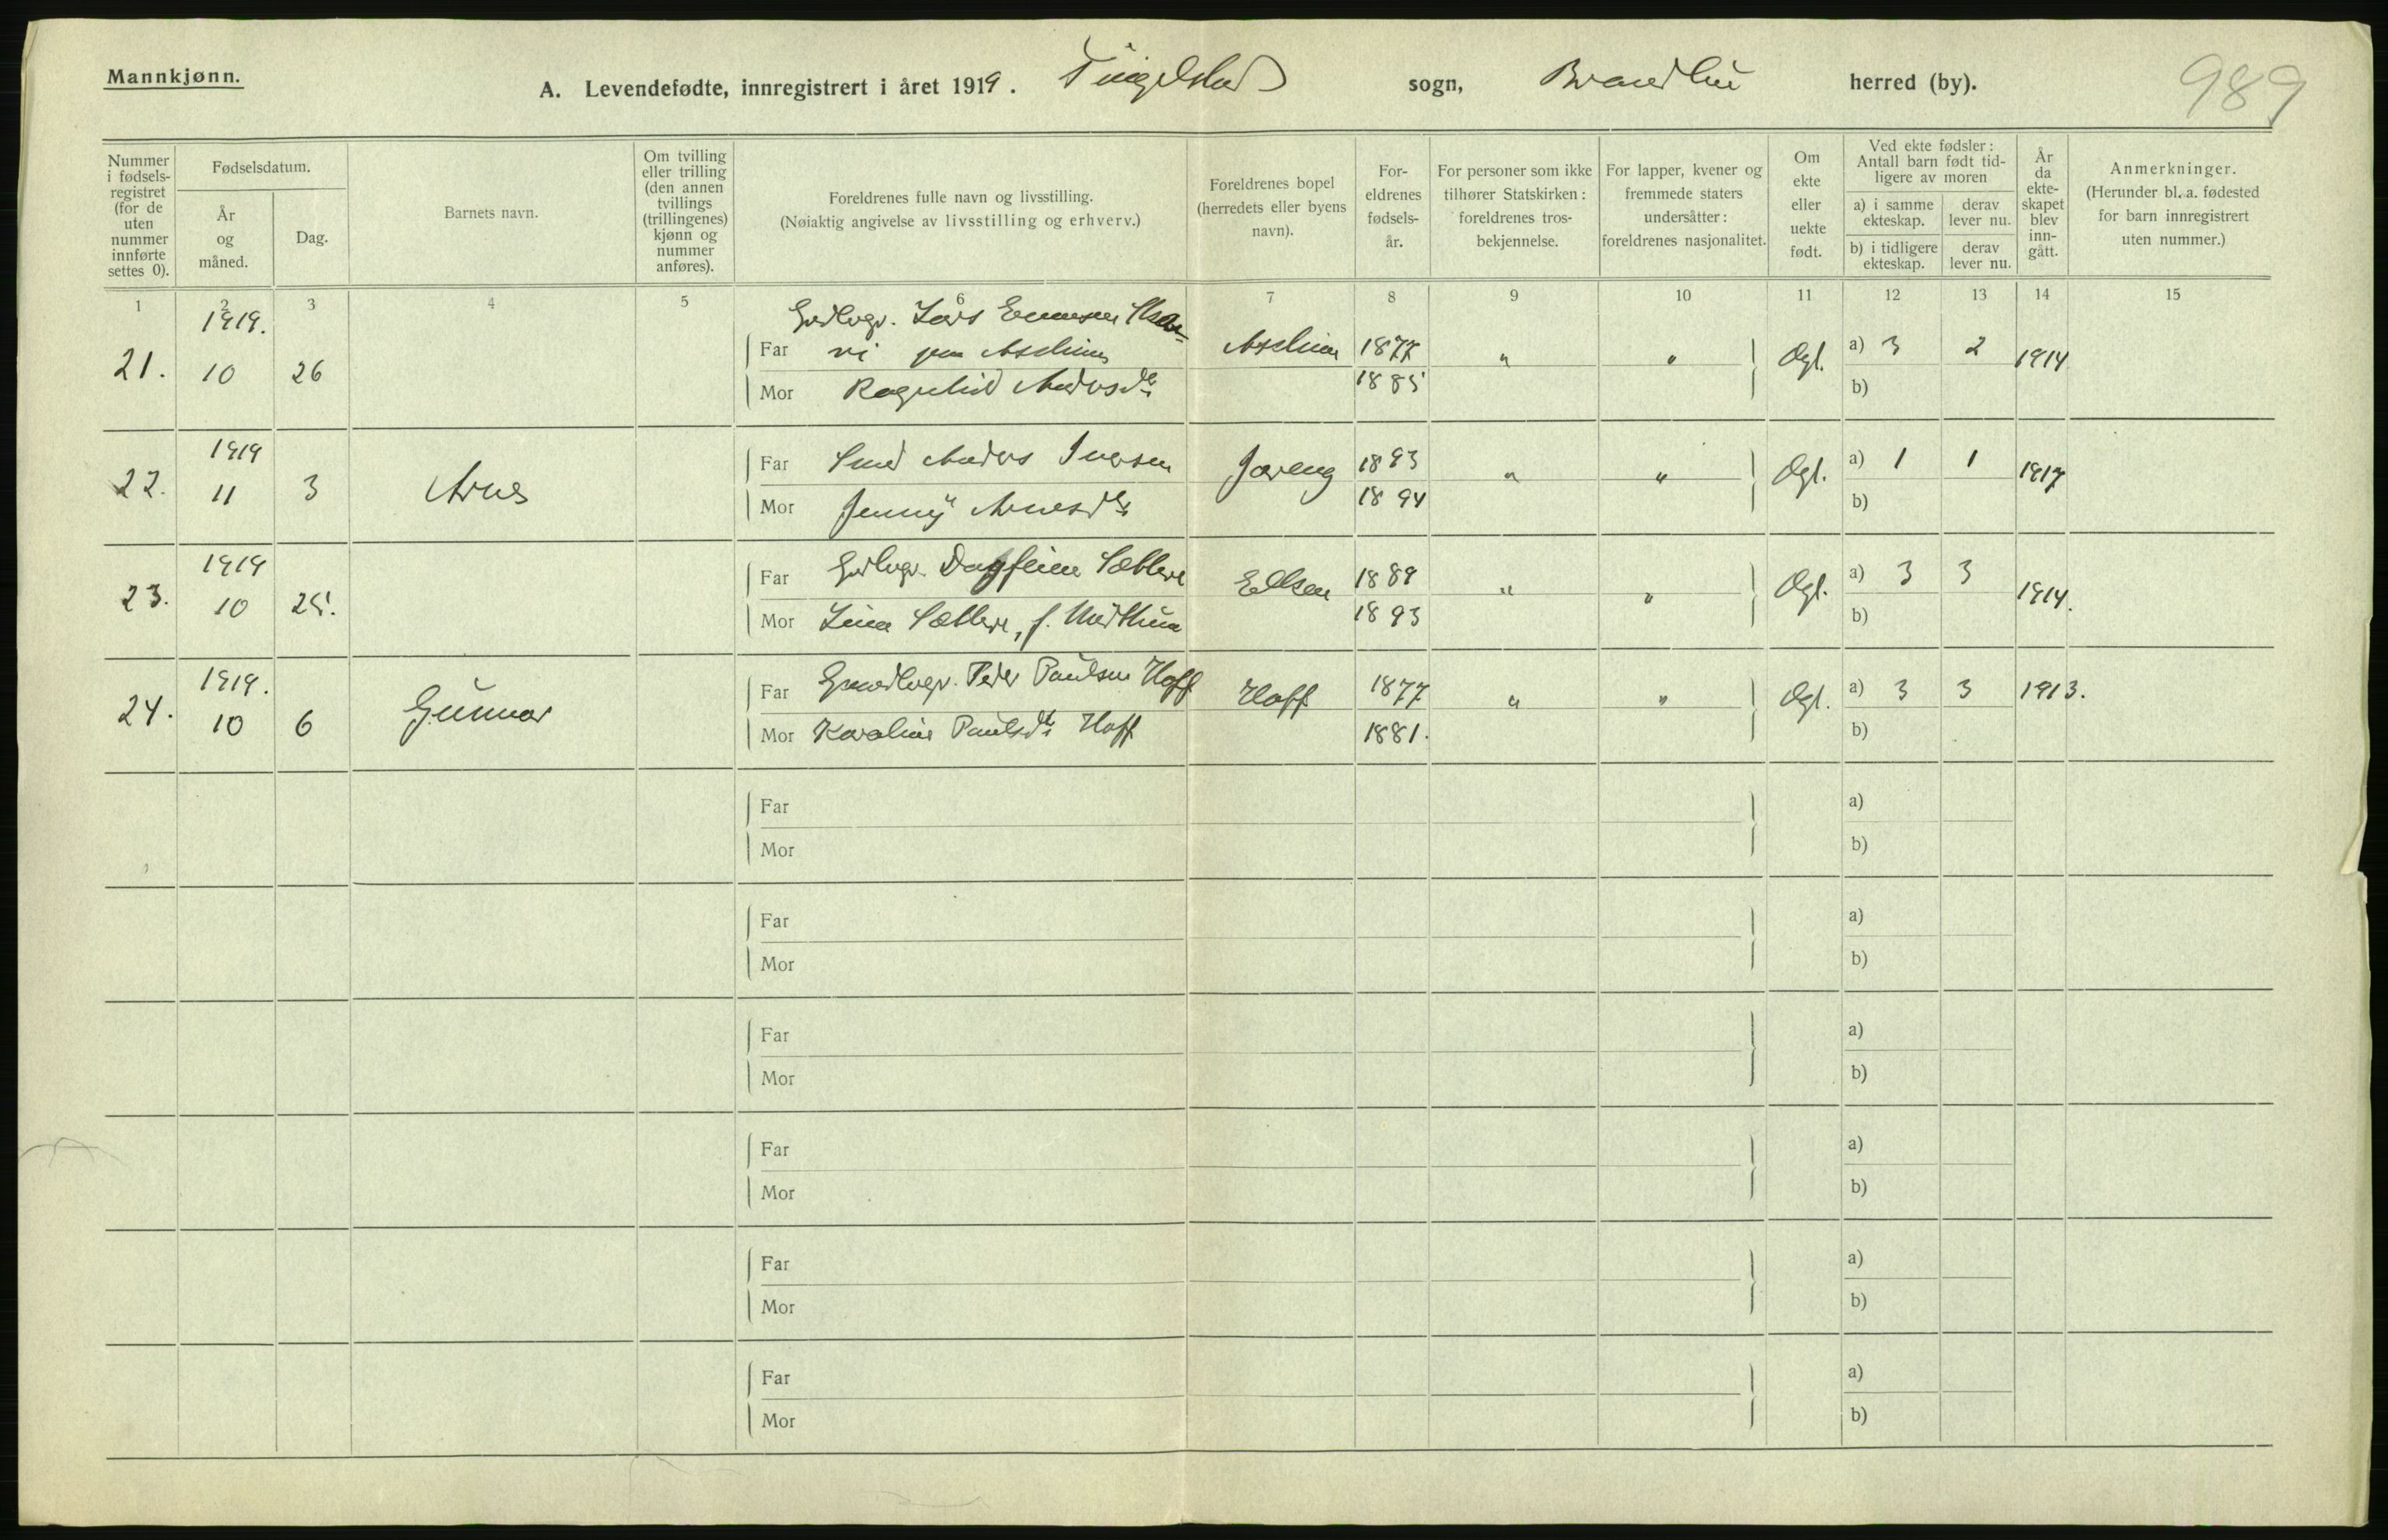 Mannkjønn.
A. Levendefødte, innregistrert i året 1919. Tingelstad sogn, Brandbu herred (by).
989
Nummer i fødsels- registret (for de uten nummer innførte settes 0).
Fødselsdatum.
År og måned.
Dag.
Barnets navn.
Om tvilling eller trilling (den annen tvillings (trillingenes) kjønn og nummer anføres).
Foreldrenes fulle navn og livsstilling.
(Nøiaktig angivelse av livsstilling og erhverv.)
Foreldrenes bopel (herredets eller byens navn).
For- eldrenes fødsels- år.
For personer som ikke tilhører Statskirken: foreldrenes tros- bekjennelse.
For lapper, kvener og fremmede staters undersåtter: foreldrenes nasjonalitet.
Om ekte eller uekte født.
Ved ekte fødsler: Antall barn født tid- ligere av moren
a) i samme ekteskap.
derav lever nu.
b) i tidligere ekteskap.
derav lever nu.
År da ekte- skapet blev inn- gått.
Anmerkninger.
(Herunder bl. a. fødested for barn innregistrert uten nummer.)
1 2 3 4 5 6 7 8 9 10 11 12 13 14 15
1919.
Lars
21. 10 26 Far Aschim 1877 " " Ægt. a) 3 2 1914
Mor Ragnhild Andersdtr 1885 b)
1919
22. 11 3 Arne Far Smed Anders Iversen Jareng 1893 " " Ægt. a) 1 1 1917
Mor Jenny Arnesdtr 1894 b)
1919
23. 10 25. Far Grdbgr. Dagfinn Sætre 1889 " " Ægt. a) 3 3 1914.
Mor Lina Sætre, f. 1893 b)
1919.
24. 10 6 Gunnar Far Peder Paulsen Hoff Hoff 1877 " " Ægt. a) 3 3 1913.
Mor Karoline Paulsdtr Hoff 1881. b)
Far a)
Mor b)
Far a)
Mor b)
Far a)
Mor b)
Far a)
Mor b)
Far a)
Mor b)
Far a)
Mor b)